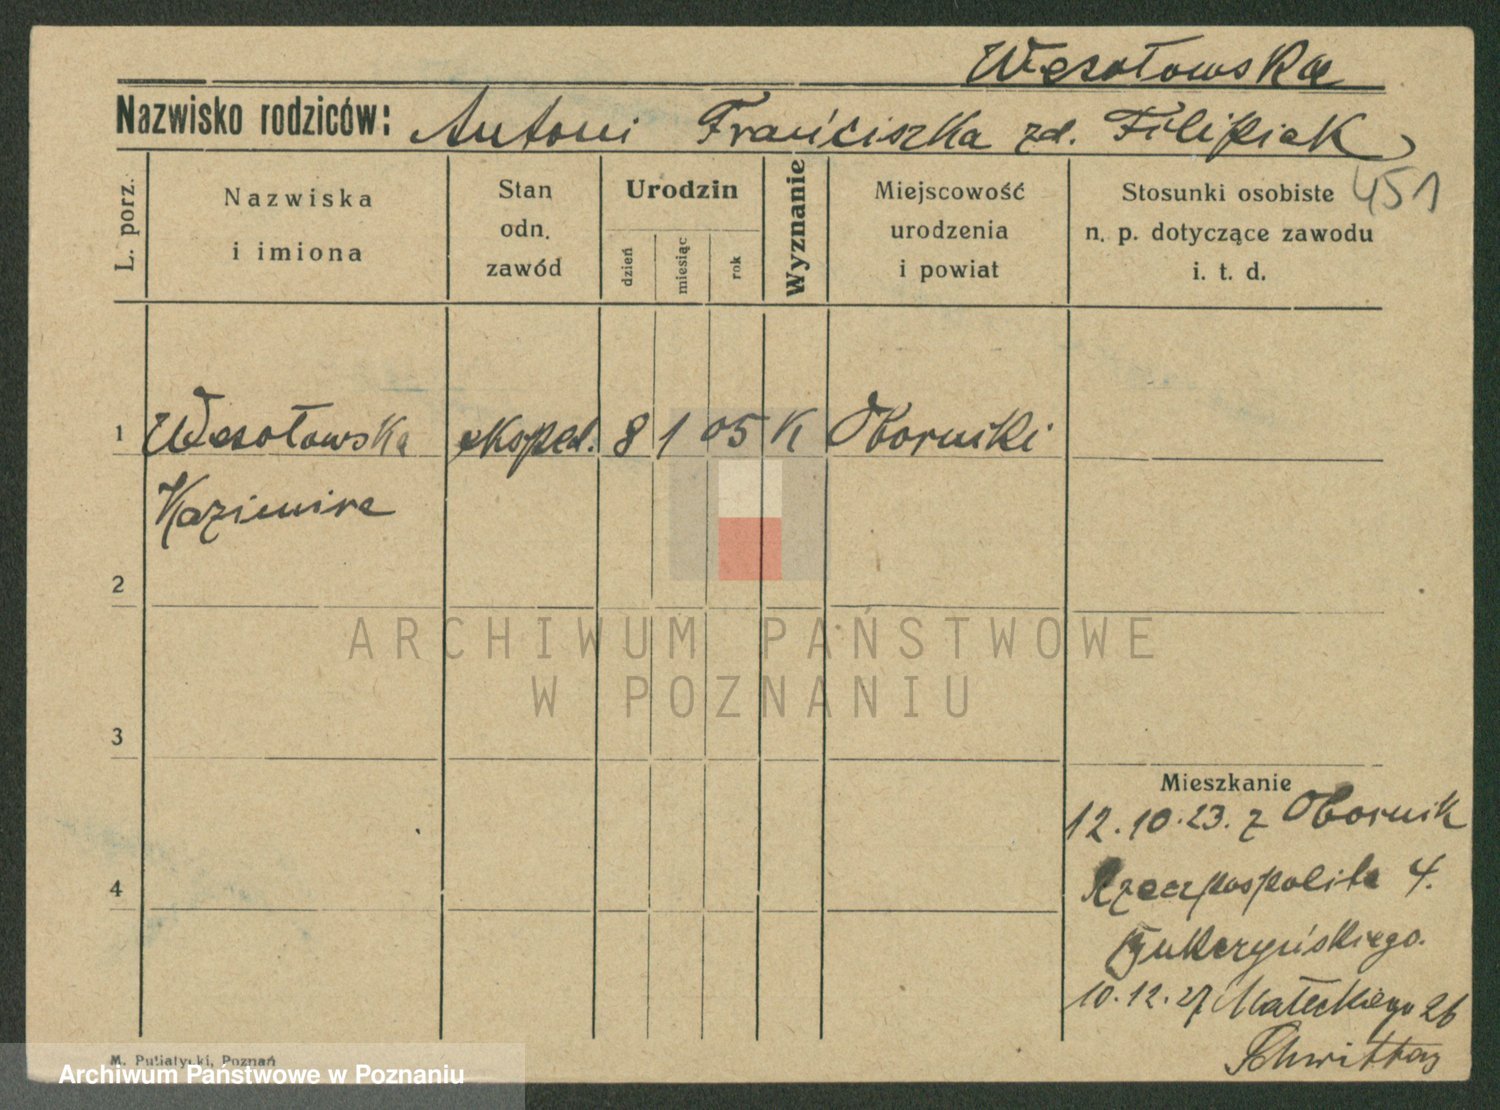 Wesołowska
Nazwisko rodziców: Antoni Franciszka zd. Filipiak
451
L. porz.
Nazwiska
i imiona
Stan
odn.
zawód
Urodzin
dzień
miesiąc
rok
Wyznanie
Miejscowość
urodzenia
i powiat
Stosunki osobiste
n. p. dotyczące zawodu
i. t. d.
1 Wesołowska eksped. 8 1 05 K Oborniki
Kazimira
2
ARCHIWUM PAŃSTWOWE
W POZNANIU
3
Mieszkanie
12.10.23. z Obornik
Rzeczpospolita 4.
4
10.12.27 Małeckiego 26
M. Putiatycki, Poznań
Archiwum Państwowe w Poznaniu